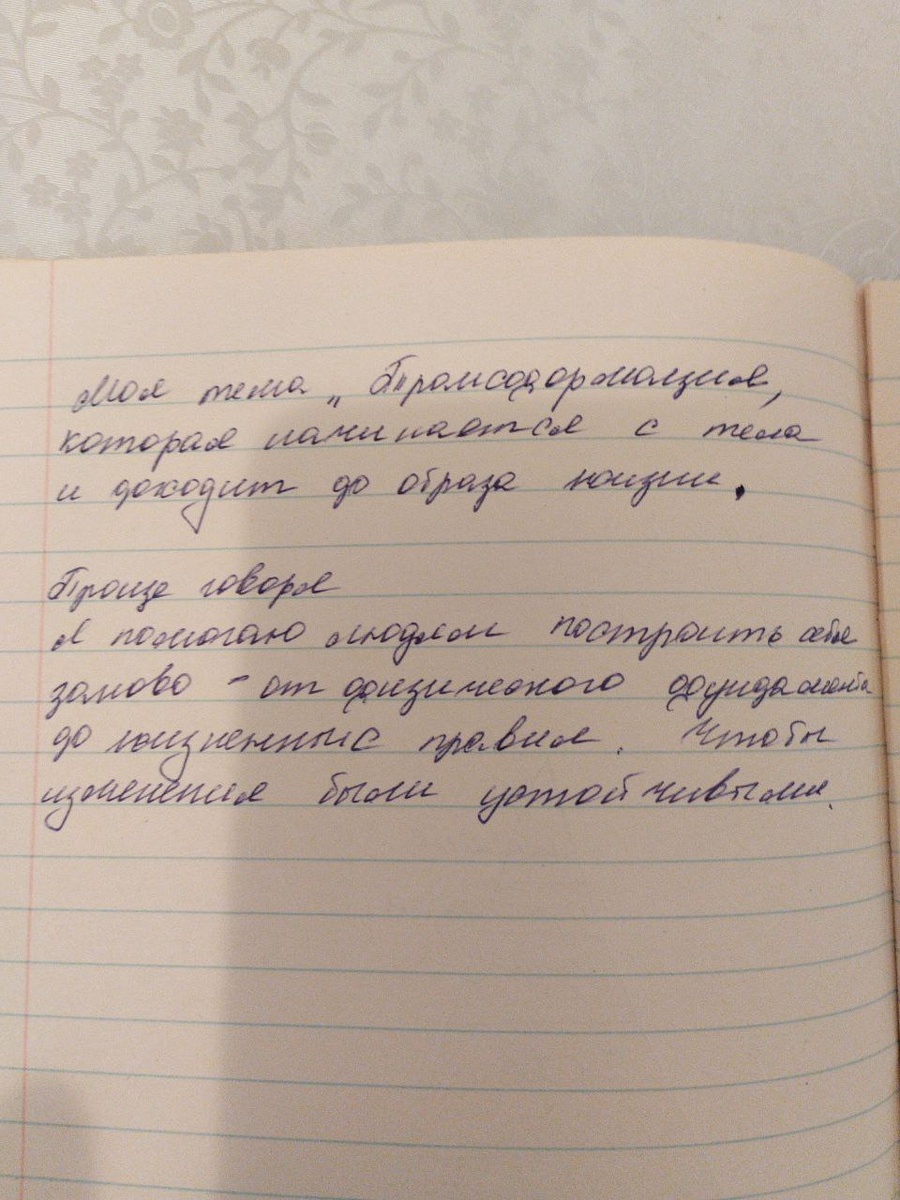 Моя тема „Трансформация,
которая начинается с тела
и доходит до образа жизни.
Проще говоря
Я помогаю людям построить себя
заново - от физического фундамента
до жизненных правил. Чтобы
изменения были устойчивыми.